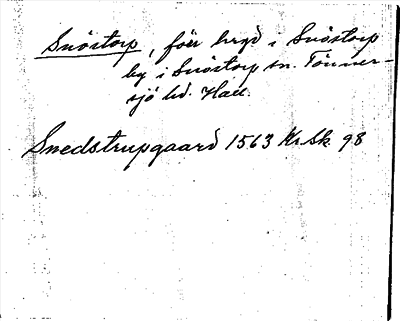 Snöstorp, förr bygd i Snöstorp
by i Snöstorp sn. Tönner-
sjö hd. Hall.
Snedstrupgaard 1563 Kr.Sk. 98